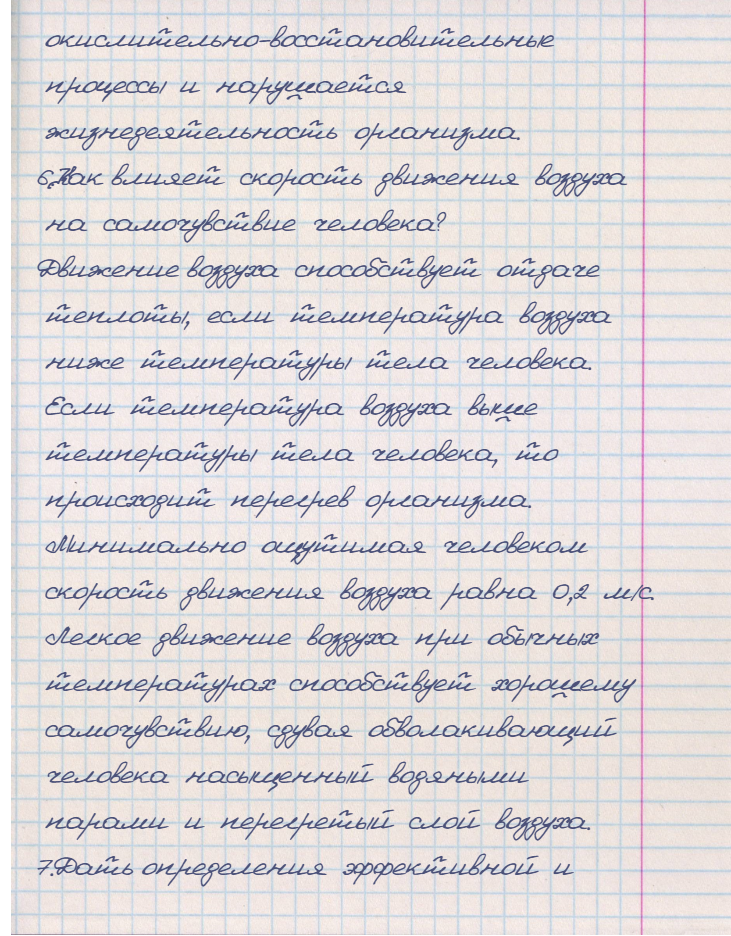 окислительно-восстановительные
процессы и нарушается
жизнедеятельность организма.
6.Как влияет скорость движения воздуха
на самочувствие человека?
Движение воздуха способствует отдаче
теплоты, если температура воздуха
ниже температуры тела человека.
Если температура воздуха выше
температуры тела человека, то
происходит перегрев организма.
Минимально ощутимая человеком
скорость движения воздуха равна 0,2 м/с.
Легкое движение воздуха при обычных
температурах способствует хорошему
самочувствию, сдувая обволакивающий
человека насыщенный водяными
парами и перегретый слой воздуха.
7.Дать определения эффективной и